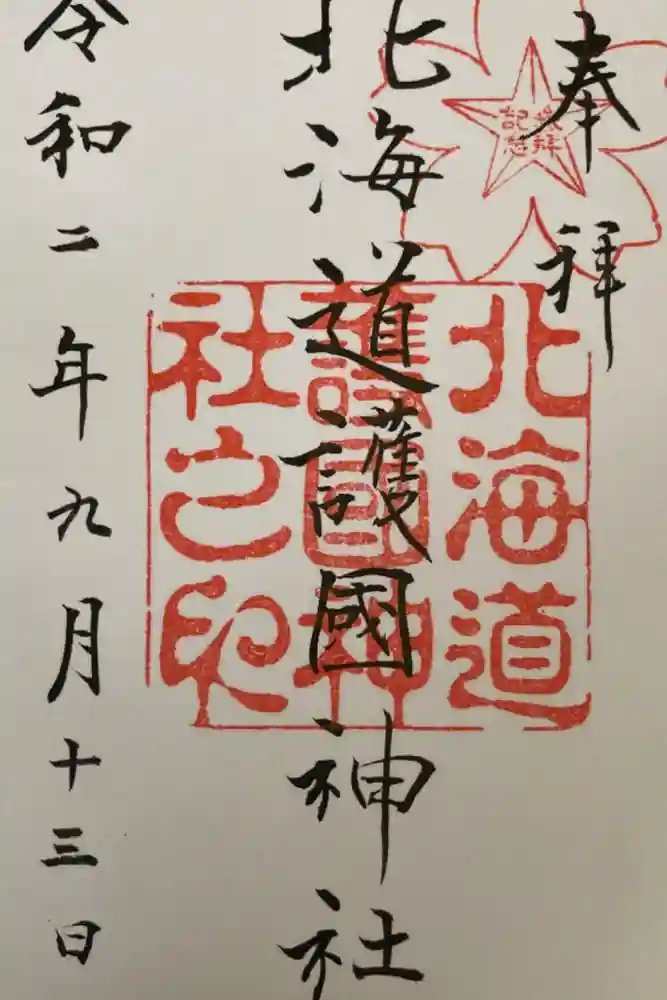 奉拝
参拝記念
北海道護國神社
北海道
護國神
社之印
令和二年九月十三日